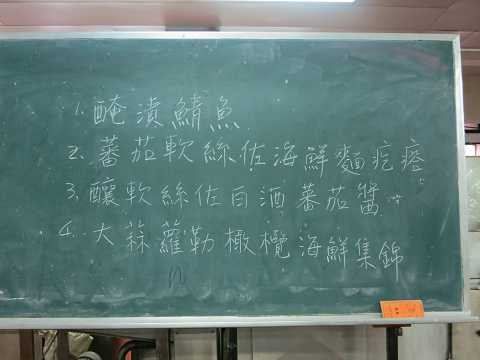 1. 醃漬鯖魚
2. 蕃茄軟絲佐海鮮麵疙瘩
3. 釀軟絲佐白酒蕃茄醬
4. 大蒜蘿勒橄欖海鮮集錦